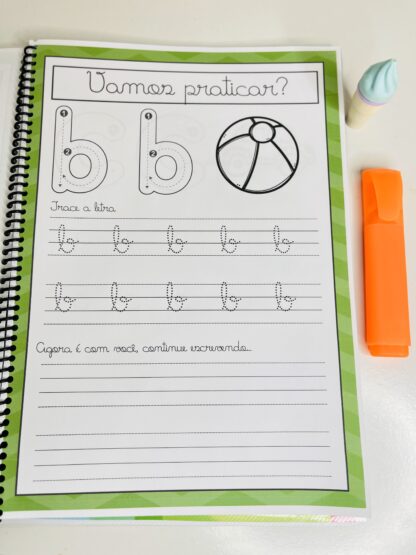 Vamos praticar?
b b
1 1
2 2
Trace a letra
b b b b b
b b b b b
Agora é com você, continue escrevendo...